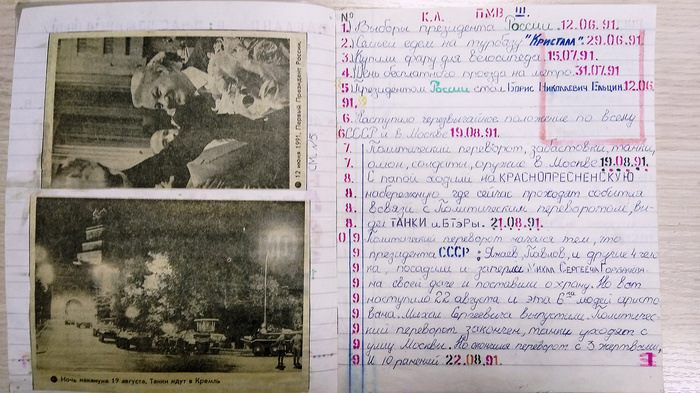 12 июня 1991. Первый Президент России.
СМ. N5
Ночь накануне 19 августа. Танки идут в Кремль
№ К.А. ПМВ III.
1. Выборы президента России. 12.06.91.
2. Семьёй едем на турбазу "Кристалл". 29.06.91.
3. Купили фару для велосипеда. 15.07.91.
4. День бесплатного проезда на метро. 31.07.91
5. Президентом России стал Борис Николаевич Ельцин. 12.06.
91.
6. Наступило чрезвычайное положение по всему
6 СССР и в Москве 19.08.91.
7. Политический переворот, забастовки, танки,
7. омон, солдаты, оружие в Москве 19.08.91.
8. С папой ходили на КРАСНОПРЕСНЕНСКУЮ
8. набережную, где сейчас проходят события
8. в связи с Политическим переворотом, ви-
8. дел ТАНКИ и БТэРы. 21.08.91.
9 Политический переворот начался тем, что
9 президента СССР : Янаев, Павлов, и другие 4 чело
9 ка, посадили и заперли Михаил Сергеевича Горбачёва
9 на своей даче и поставили охрану. Но вот
9 наступило 22 августа и эти 6 людей аресто
9 вана. Михаил Сергеевича выпустили. Политичес-
9 кий переворот закончен, танки уходят с
9 улиц Москвы. Но окончился переворот с 3 жертвами,
9 и 10 ранений 22.08.91. 1